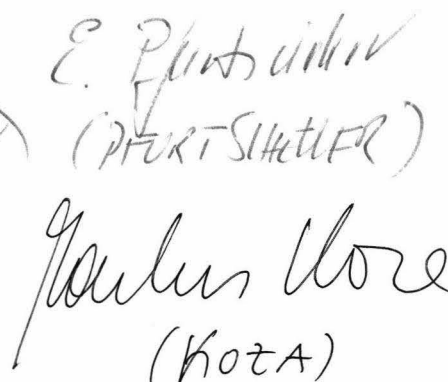 E. Pfurtscheller
(PFURTSCHELLER)
Markus Koza
(KOZA)